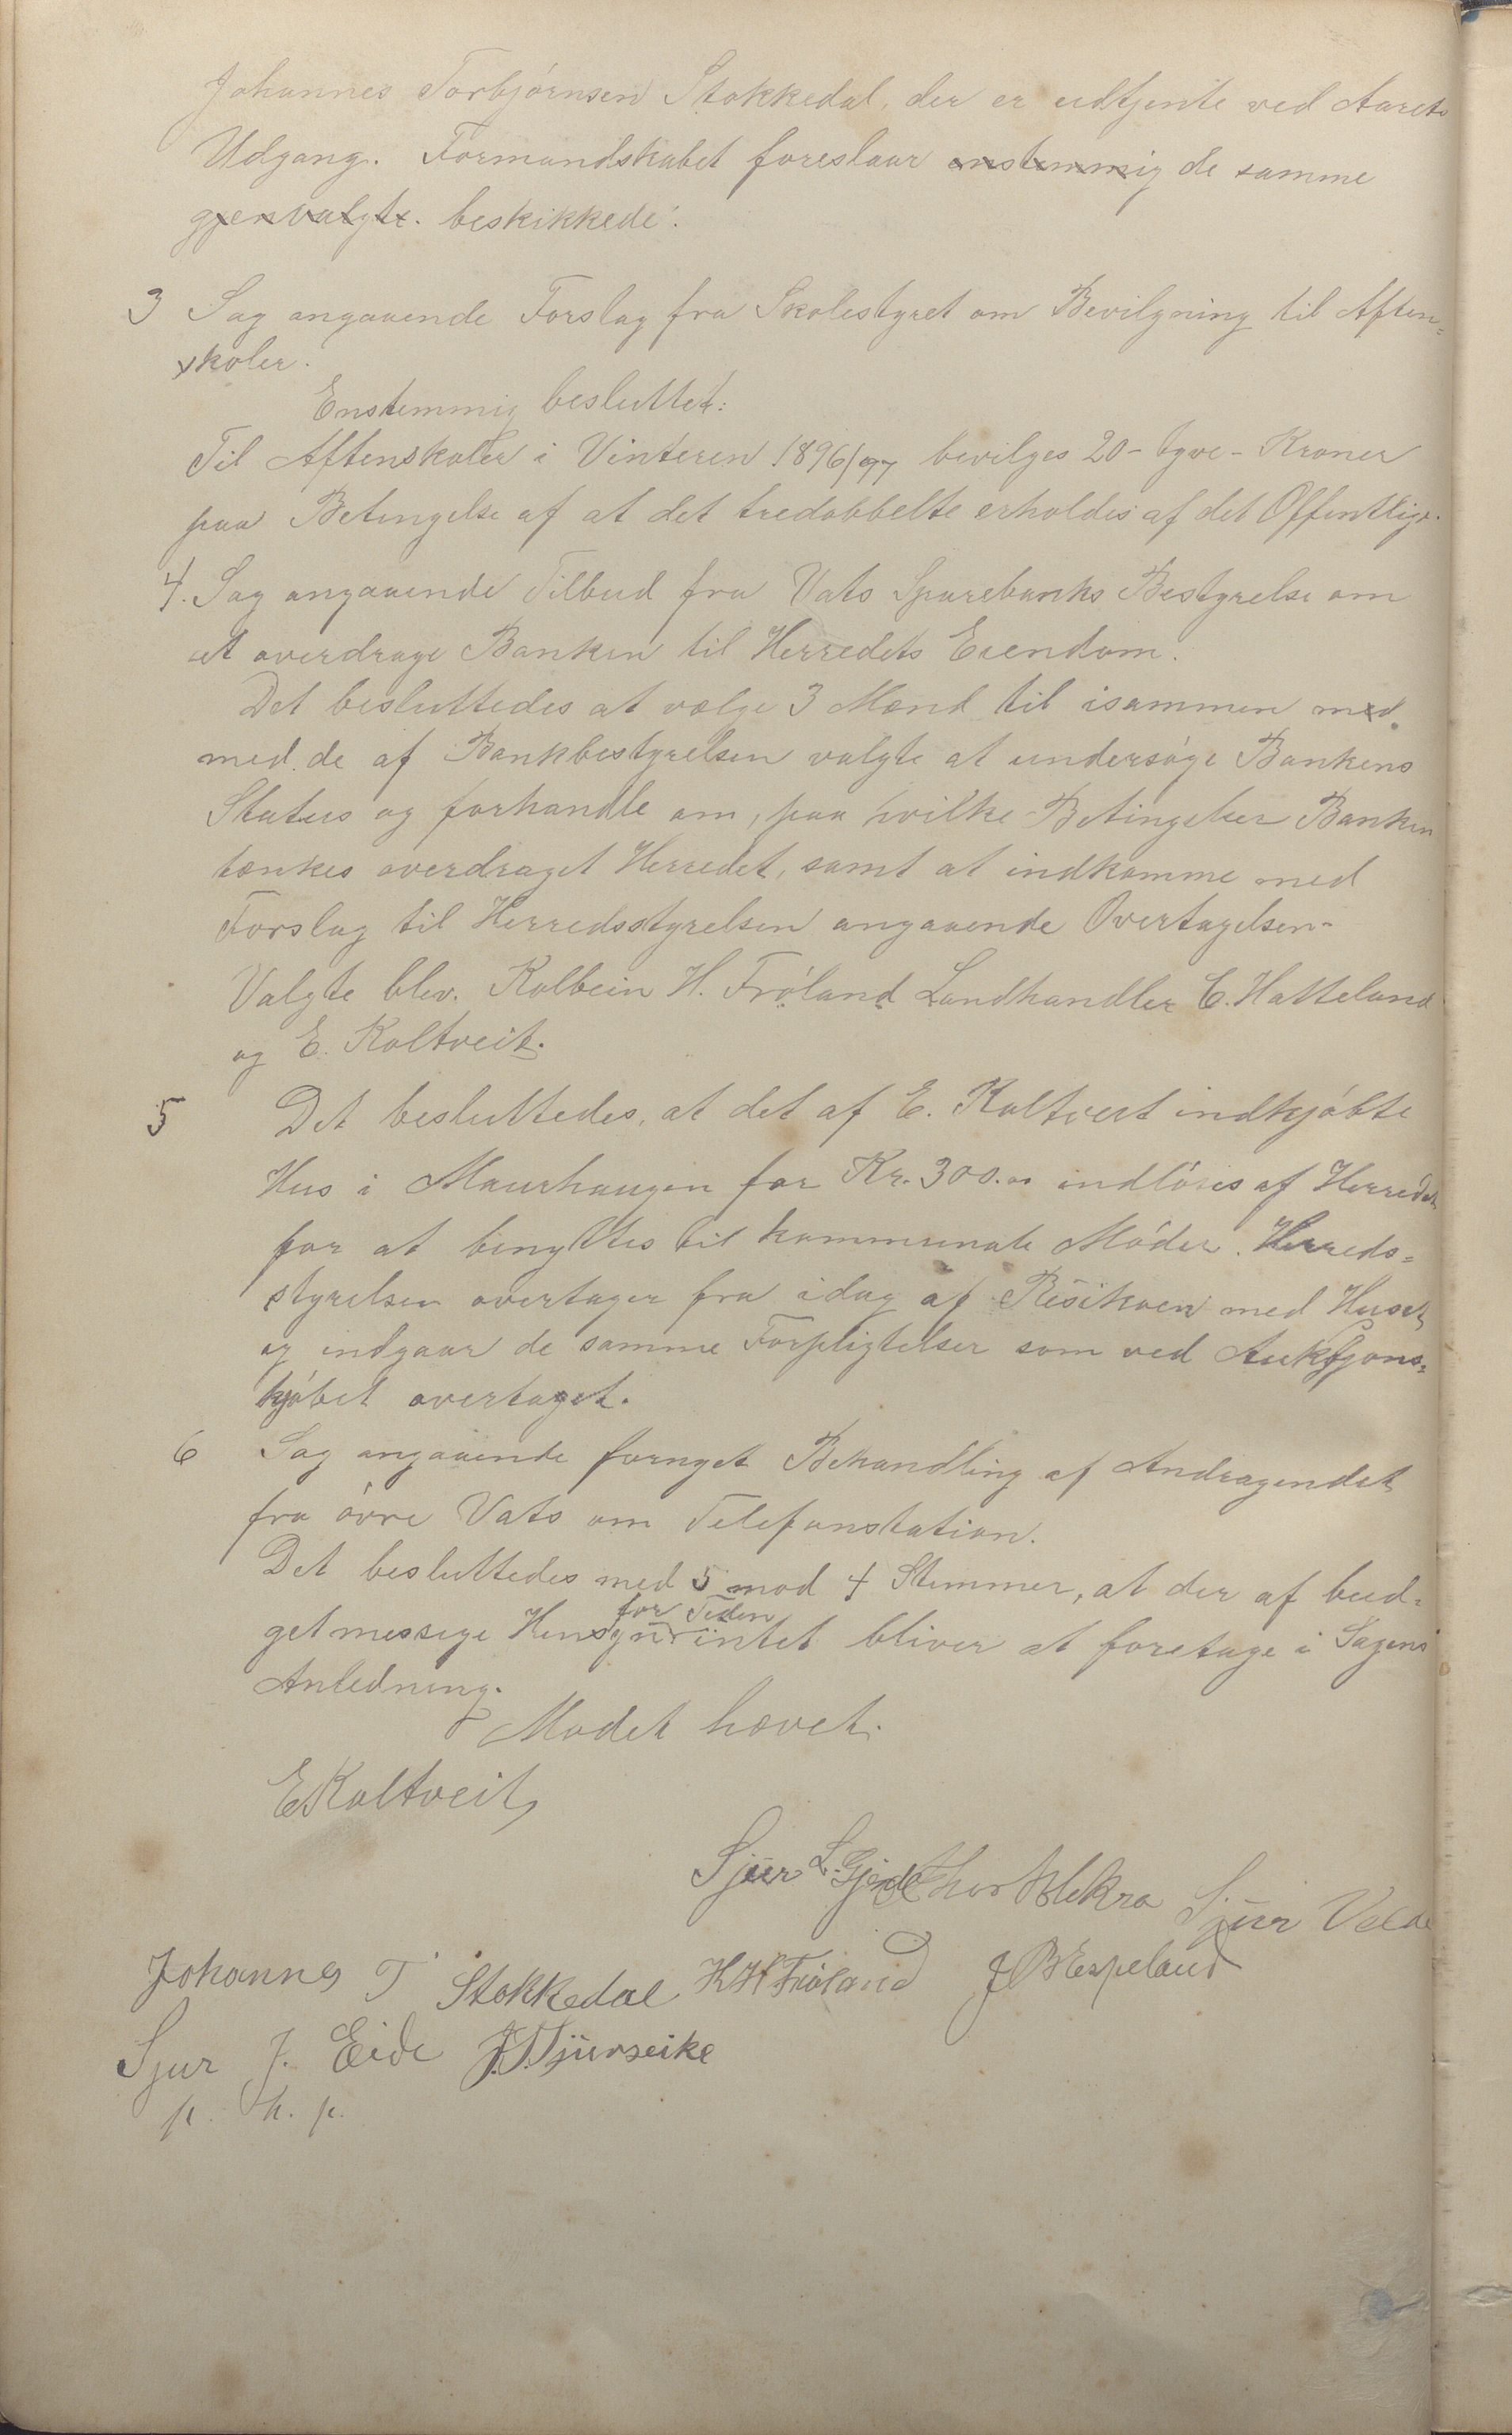 Johannes Torbjörnsen Stokkedal, der er udtjente ved Aarets
Udgang. Formandskabet foreslaar enstemmig de samme
gjenvalgte. beskikkede.
3 Sag angaaende Forslag fra Skolestyret om Bevilgning til Aften=
skoler.
Enstemmig besluttet:
Til Aftenskoler i Vinteren 1896/97 bevilges 20 - tyve - Kroner
paa Betingelse af at det tredobbelte erholdes af det Offentlige.
4. Sag angaaende Tilbud fra Vats Sparebanks Bestyrelse om
at overdrage Banken til Herredets Eiendom.
Det besluttedes at vælge 3 Mænd til isammen med
med de af Bankbestyrelsen valgte at undersöge Bankens
Status og forhandle om, paa hvilke Betingelser Banken
tænkes overdraget Herredet, samt at indkomme med
Forslag til Herredsstyrelsen angaaende Overtagelsen.
Valgte blev. Kolbein H. Fröland Landhandler C. Hatteland
og E. Kaltveit.
5 Det besluttedes, at det af E. Kaltveit indkjöbte
Hus i Maurhaugen for Kr. 300.00 indlöses af Herredet
for at benyttes til kommunale Möder. Herreds=
styrelsen overtager fra idag af Risikoen med Huset
og indgaar de samme Forpligtelser som ved Auktjons=
kjöbet overtaget.
6 Sag angaaende fornyet Behandling af Andragendet
fra övre Vats om Telefonstation.
Det besluttedes med 5 mod 4 Stemmer, at der af bud=
for Tiden
getmessige Hensyn intet bliver at foretage i Sagens
Anledning.
Mödet hævet.
E Kaltveit
Sjur L. Gjerde Thor Blekra Sjur Valde
Johannes T Stokkedal K H Fröland J B Espeland
Sjur J. Eide J. T. Sjurseike
p. h. p.